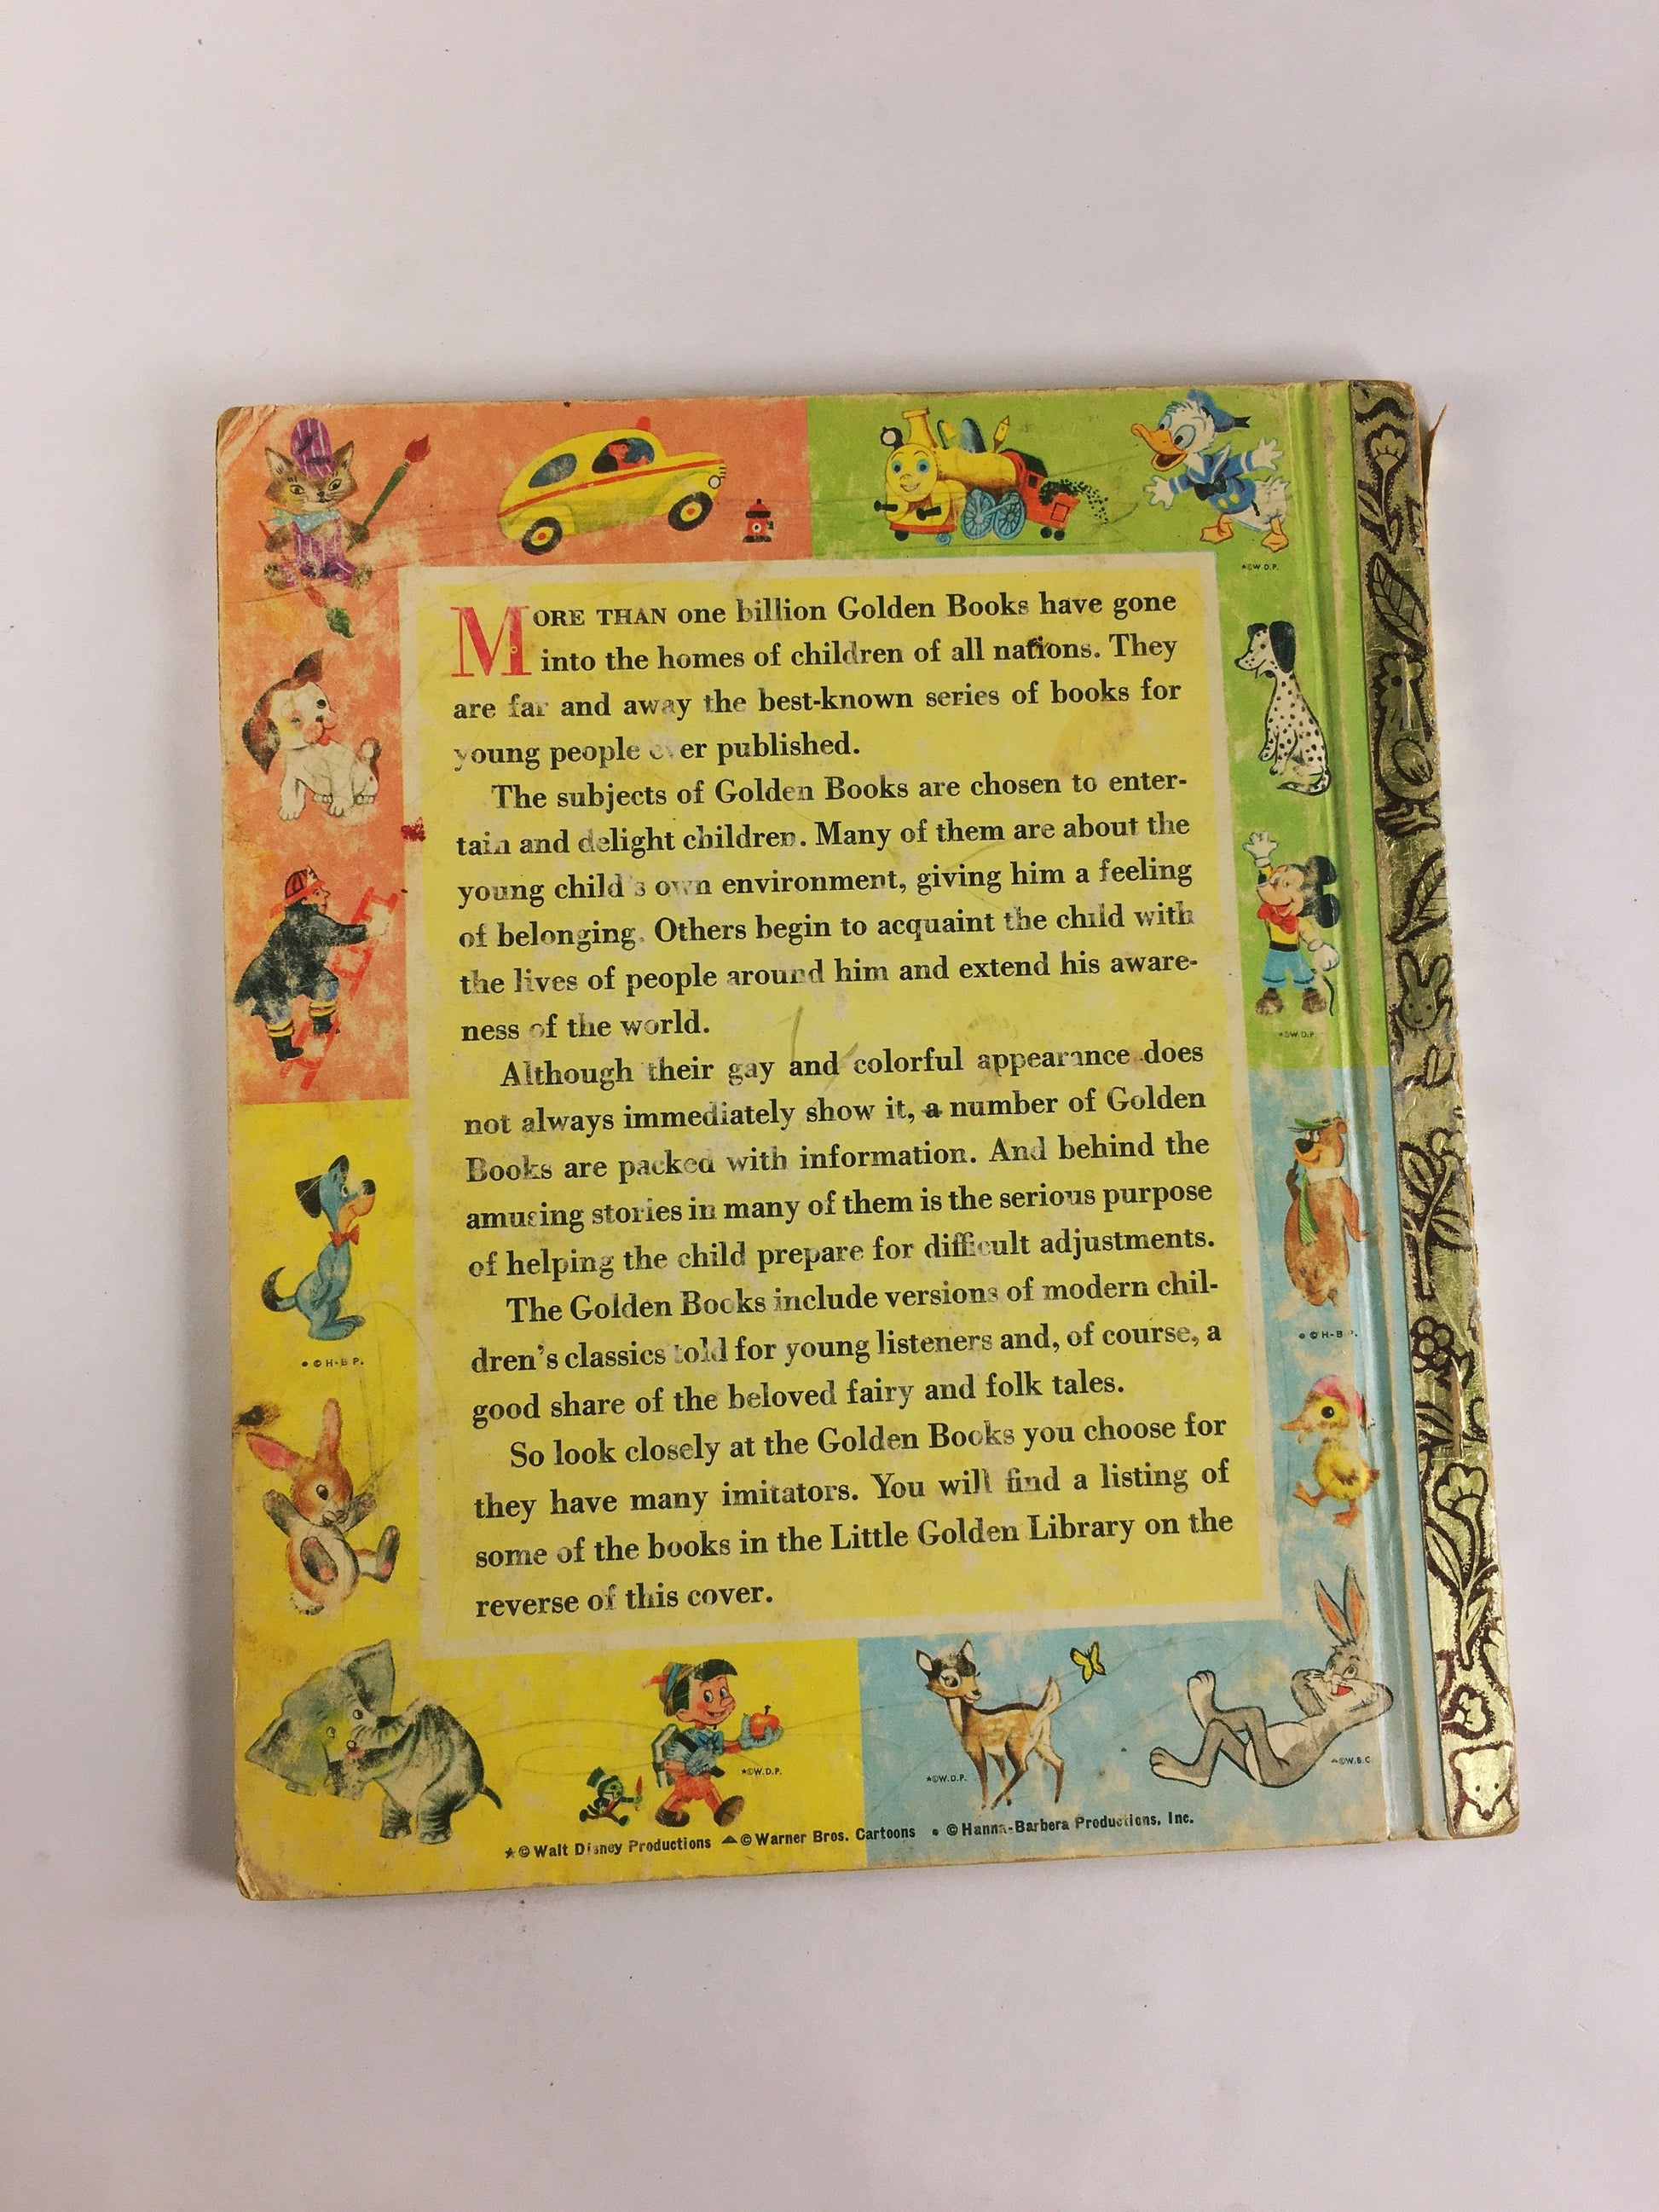 ★©W.D.P.
MORE THAN one billion Golden Books have gone
into the homes of children of all nations. They
are far and away the best-known series of books for
young people ever published.
The subjects of Golden Books are chosen to enter-
tain and delight children. Many of them are about the
young child's own environment, giving him a feeling
of belonging. Others begin to acquaint the child with
the lives of people around him and extend his aware-
ness of the world.
★©W.D.P.
Although their gay and colorful appearance does
not always immediately show it, a number of Golden
Books are packed with information. And behind the
amusing stories in many of them is the serious purpose
of helping the child prepare for difficult adjustments.
The Golden Books include versions of modern chil-
dren's classics told for young listeners and, of course, a
good share of the beloved fairy and folk tales.
●©H-B P.
●©H-B P.
So look closely at the Golden Books you choose for
they have many imitators. You will find a listing of
some of the books in the Little Golden Library on the
reverse of this cover.
★©W.D.P.
★©W.D.P.
▲©W.B.C.
★©Walt Disney Productions ▲©Warner Bros. Cartoons ●©Hanna-Barbera Productions, Inc.